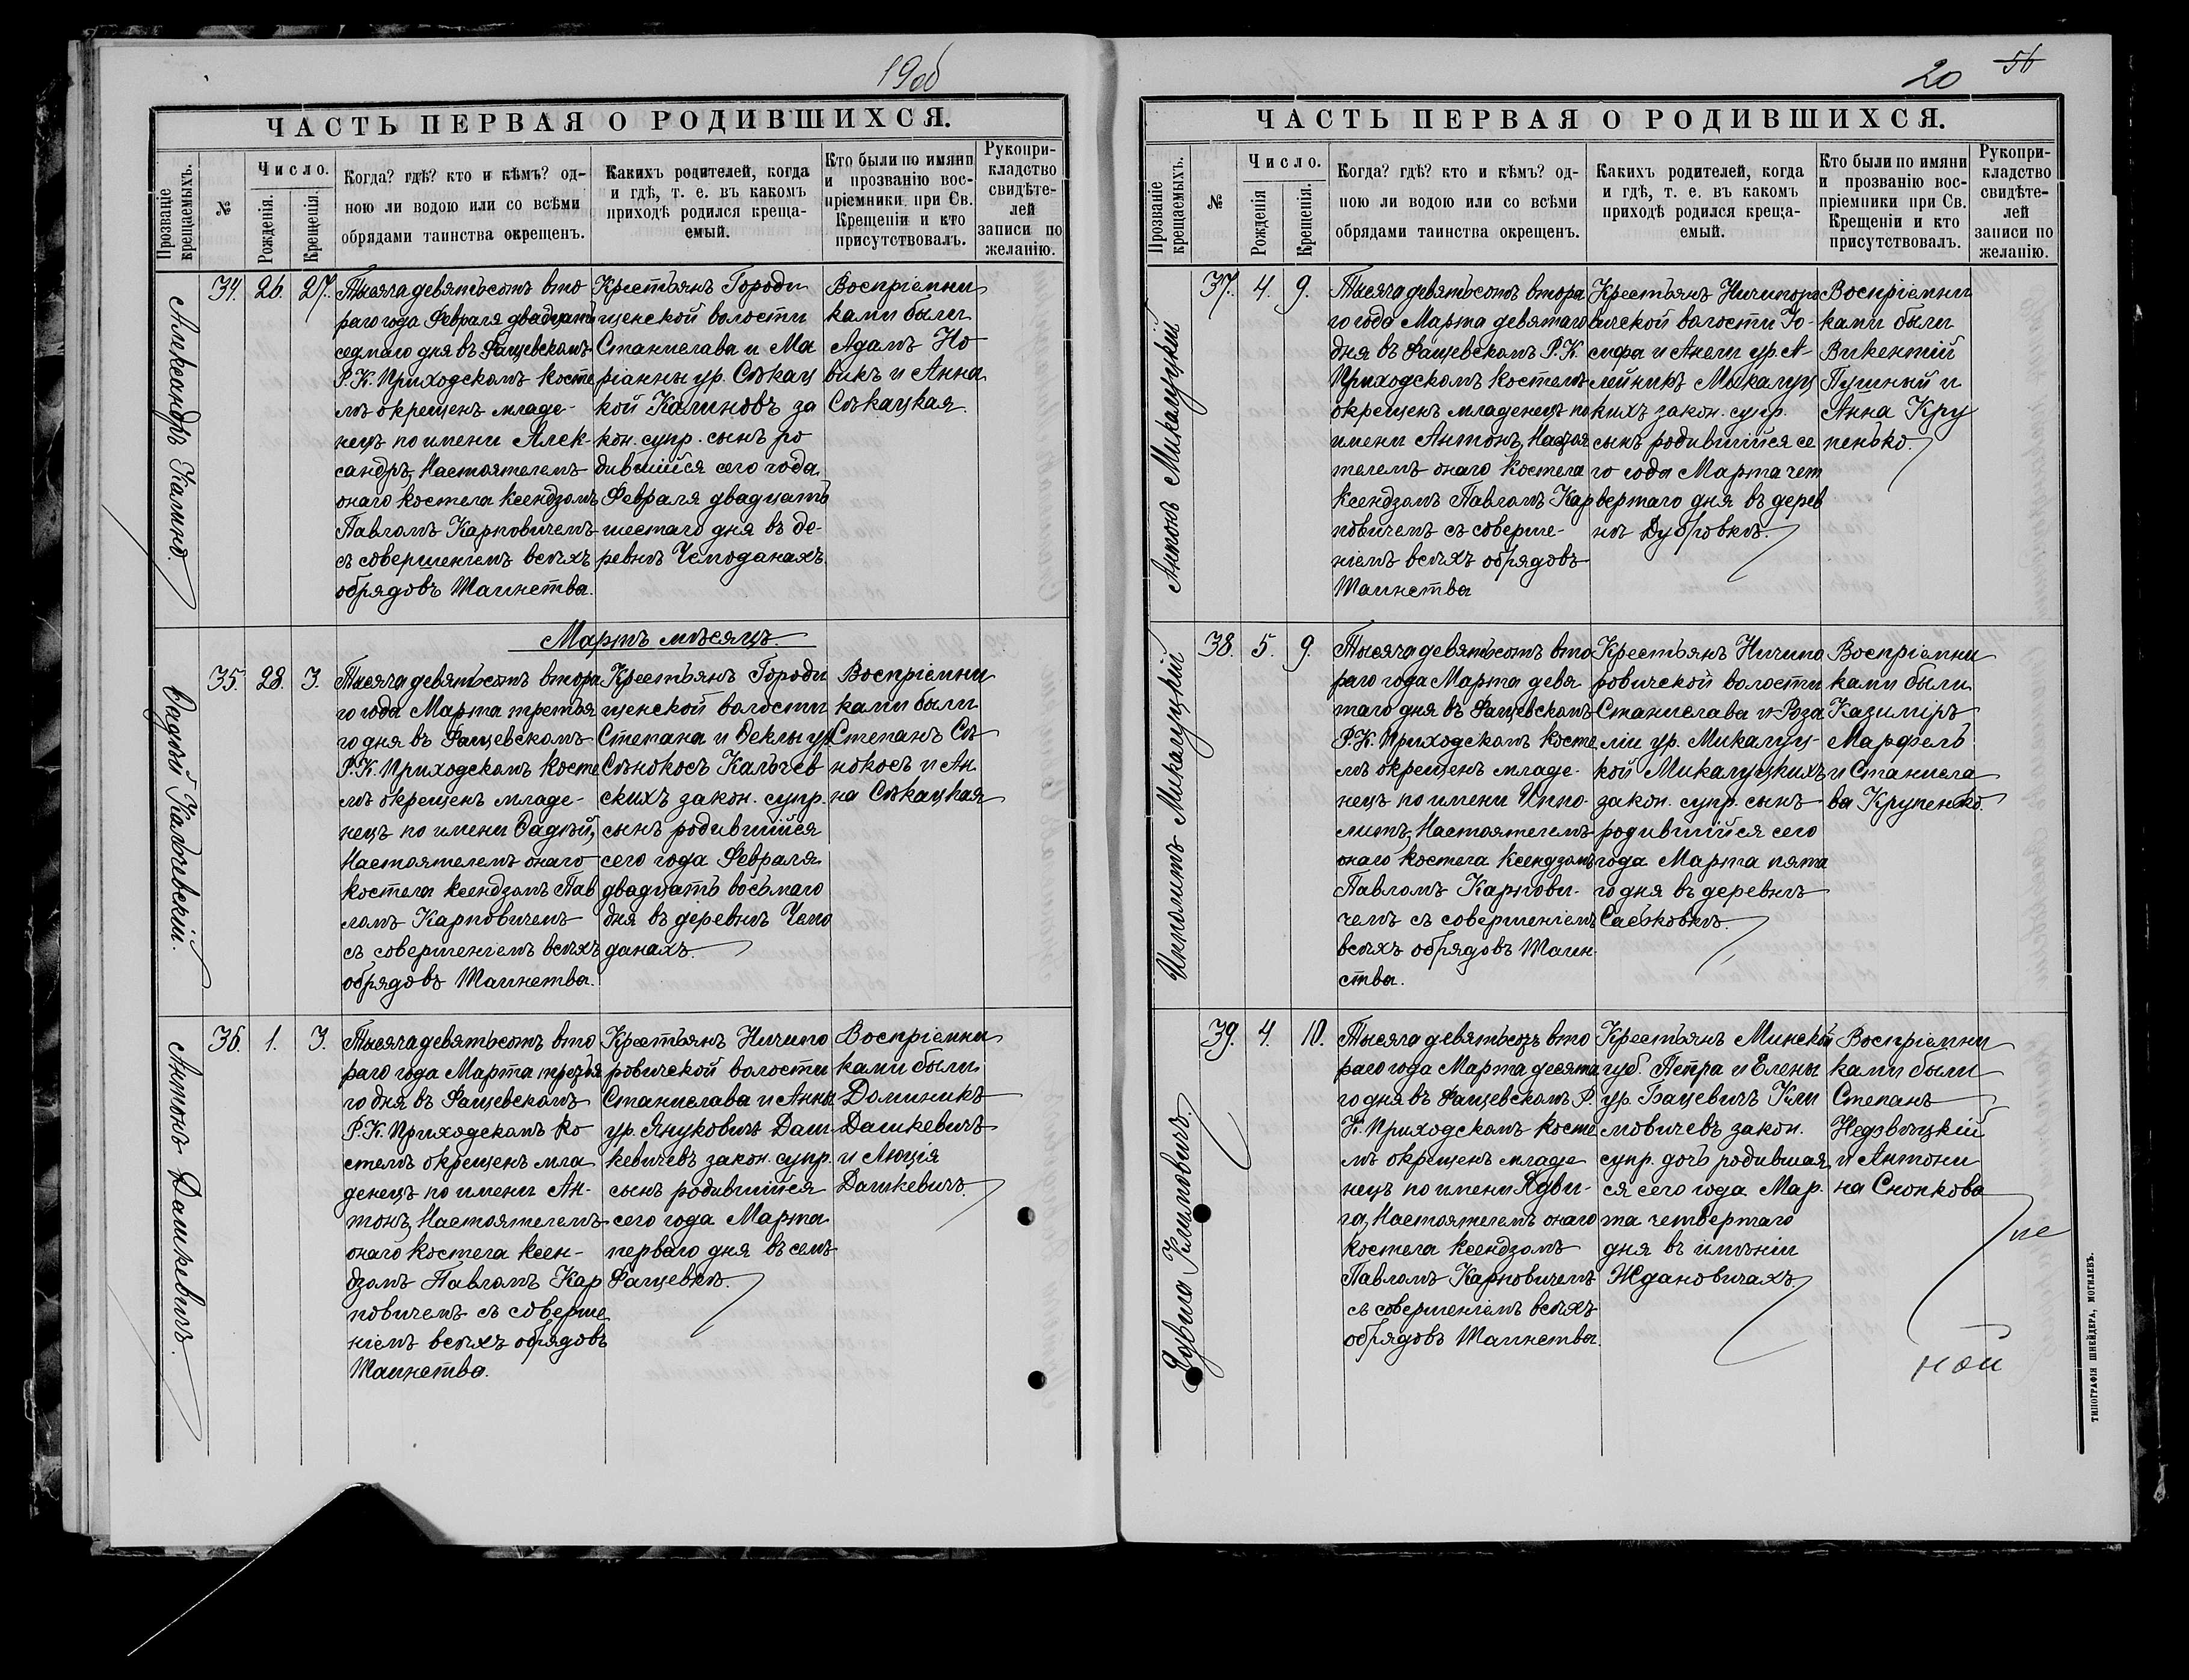 19об
ЧАСТЬ ПЕРВАЯ О РОДИВШИХСЯ.
Прозваніе крещаемыхъ.
№
Число.
Рожденія.
Крещенія.
Когда? гдѣ? кто и кѣмъ? од-
ною ли водою или со всѣми
обрядами таинства окрещенъ.
Какихъ родителей, когда
и гдѣ, т. е. въ какомъ
приходѣ родился креща-
емый.
Кто были по имяни
и прозванію вос-
пріемники при Св.
Крещеніи и кто
присутствовалъ.
Рукопри-
кладство
свидѣте-
лей
записи по
желанію.
Александръ Калино.
34.
26.
27.
Тысяча девятьсотъ вто
раго года Февраля двадцать
седмаго дня въ Фащевскомъ
Р. К. Приходскомъ косте
лѣ окрещенъ младе-
нецъ по имени Алек-
сандръ, Настоятелемъ
онаго костела ксендзомъ
Павломъ Карповичемъ
съ совершеніемъ всѣхъ
обрядовъ Таинства.
Крестьянъ Городи
щенской волости
Станислава и Ма
ріанны ур. Сѣкац
кой Калиновъ за
кон. супр. сынъ ро
дившійся сего года
Февраля двадцать
шестаго дня въ де-
ревнѣ Чемоданахъ.
Воспріемни
ками были
Адамъ Но
викъ и Анна
Сѣкацкая.
Мартъ мѣсяцъ
Фадѣй Кальчевскій.
35.
28.
3.
Тысяча девятьсотъ втора
го года Марта третья
го дня въ Фащевскомъ
Р. К. Приходскомъ косте
лѣ окрещенъ младе-
нецъ по имени Фадѣй,
Настоятелемъ онаго
костела ксендзомъ Пав
ломъ Карповичемъ
съ совершеніемъ всѣхъ
обрядовъ Таинства.
Крестьянъ Городи
щенской волости
Степана и Феклы ур.
Сѣнокосъ Кальчев
скихъ закон. супр.
сынъ родившійся
сего года Февраля
двадцать восьмаго
дня въ деревнѣ Чемо
данахъ.
Воспріемни
ками были
Степанъ Сѣ
нокосъ и Ан
на Сѣкацкая
Антонъ Дашкевичъ.
36.
1.
3.
Тысяча девятьсотъ вто
раго года Марта третья
го дня въ Фащевскомъ
Р. К. Приходскомъ ко
стелѣ окрещенъ мла
денецъ по имени Ан-
тонъ, Настоятелемъ
онаго костела ксен-
дзомъ Павломъ Кар
повичемъ съ соверше
ніемъ всѣхъ обрядовъ
Таинства.
Крестьянъ Ничипо
ровичской волости
Станислава и Анны
ур. Януковичъ Даш
кевичевъ закон. супр.
сынъ родившійся
сего года Марта
перваго дня въ селѣ
Фащевкѣ.
Воспріемни
ками были
Доминикъ
Дашкевичъ
и Люція
Дашкевичъ.
20
56
ЧАСТЬ ПЕРВАЯ О РОДИВШИХСЯ.
Прозваніе крещаемыхъ.
№
Число.
Рожденія
Крещенія.
Когда? гдѣ? кто и кѣмъ? од-
ною ли водою или со всѣми
обрядами таинства окрещенъ.
Какихъ родителей, когда
и гдѣ, т. е. въ какомъ
приходѣ родился креща-
емый.
Кто были по имяни
и прозванію вос-
пріемники при Св.
Крещеніи и кто
присутствовалъ.
Рукопри-
кладство
свидѣте-
лей
записи по
желанію.
Антонъ Микалуцкій
37.
4.
9.
Тысяча девятьсотъ втора
го года Марта девятаго
дня въ Фащевскомъ Р. К.
Приходскомъ костелѣ
окрещенъ младенецъ по
имени Антонъ, Настоя
телемъ онаго костела
ксендзомъ Павломъ Кар
повичемъ съ соверше-
ніемъ всѣхъ обрядовъ
Таинства
Крестьянъ Ничипоро
вичской волости Іо-
сифа и Анели ур. А-
лейникъ Микалуц
кихъ закон. супр.
сынъ родившійся се
го года Марта чет
вертаго дня въ дерев
нѣ Дубровкѣ.
Воспріемни
ками были
Викентій
Пушный и
Анна Кру
пенько.
Ипполитъ Микалуцкій
38.
5.
9.
Тысяча девятьсотъ вто
раго года Марта девя
таго дня въ Фащевскомъ
Р. К. Приходскомъ косте
лѣ окрещенъ младе-
нецъ по имени Иппо-
литъ, Настоятелемъ
онаго костела ксендзомъ
Павломъ Карпови-
чемъ съ совершеніемъ
всѣхъ обрядовъ Таин-
ства.
Крестьянъ Ничипо
ровичской волости
Станислава и Роза
ліи ур. Микалуц-
кой Микалуцкихъ
закон. супр. сынъ
родившійся сего
года Марта пята
го дня въ деревнѣ
Саськовкѣ.
Воспріемни
ками были
Казиміръ
Марфель
и Станисла
ва Крупенько.
Ядвига Климовичъ.
39.
4.
10.
Тысяча девятьсотъ вто
раго года Марта десята
го дня въ Фащевскомъ Р.
К. Приходскомъ косте
лѣ окрещенъ младе
нецъ по имени Ядви-
га, Настоятелемъ онаго
костела ксендзомъ
Павломъ Карповичемъ
съ совершеніемъ всѣхъ
обрядовъ Таинства.
Крестьянъ Минской
губ. Петра и Елены
ур. Бацевичъ Кли
мовичевъ закон.
супр. дочь родившая
ся сего года Мар-
та четвертаго
дня въ имѣніи
Ждановичахъ.
Воспріемни
ками были
Степанъ
Недзвѣцкій
и Антони
на Снопкова
ТИПОГРАФІЯ ШНЕЙДЕРА, МОГИЛЕВЪ.